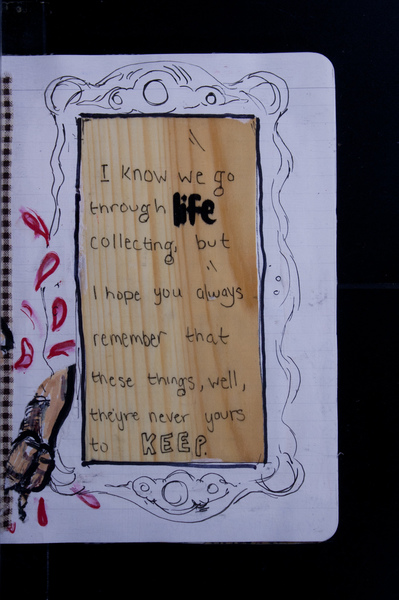 I know we go
through life
collecting, but
I hope you always
remember that
these things, well,
theyre never yours
to KEEP.